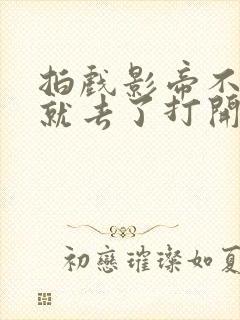 拍戲影帝不
就去了打開
初戀璀璨如夏